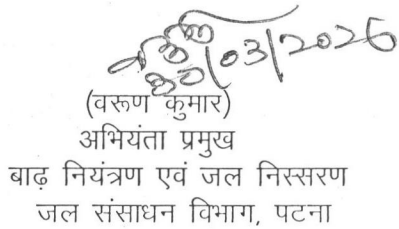 30/03/2026
(वरूण कुमार)
अभियंता प्रमुख
बाढ़ नियंत्रण एवं जल निस्सरण
जल संसाधन विभाग, पटना